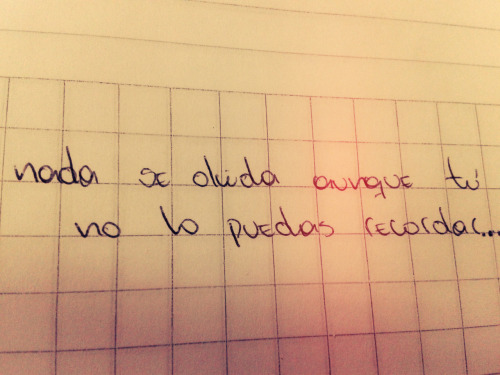 nada se olvida aunque tú
no lo puedas recordar...